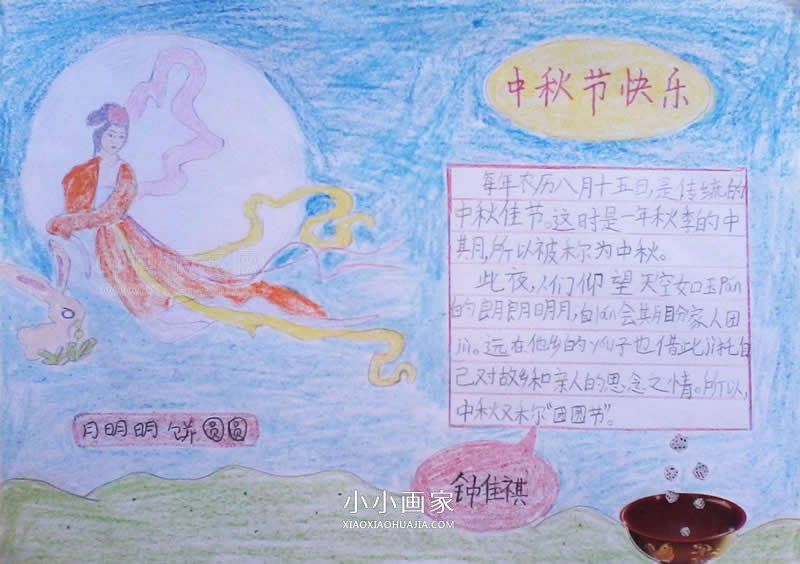 中秋节快乐
每年农历八月十五日，是传统的
中秋佳节。这时是一年秋季的中
期，所以被称为中秋。
此夜，人们仰望天空如玉Pán
的朗朗明月，自rán会期盼家人团
jù。远在他乡的yóu子也借此jì托自
己对故乡和亲人的思念之情。所以，
中秋又称“团圆节”。
月明明 饼圆圆
钟佳祺
小小画家
XIAOXIAOHUAJIA.COM